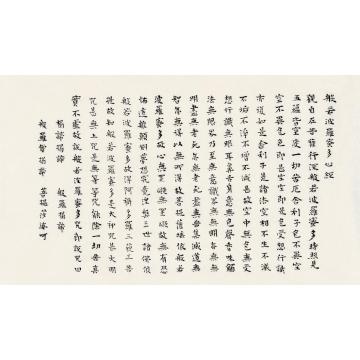 般若波羅蜜多心經
觀自在菩薩行深般若波羅蜜多時照見
五蘊皆空度一切苦厄舍利子色不異空
空不異色色即是空空即是色受想行識
亦復如是舍利子是諸法空相不生不滅
不垢不淨不增不減是故空中無色無受
想行識無眼耳鼻舌身意無色聲香味觸
法無眼界乃至無意識界無無明亦無無
明盡乃至無老死亦無老死盡無苦集滅道無
智亦無得以無所得故菩提薩埵依般若
波羅蜜多故心無罣礙無罣礙故無有恐
怖遠離顛倒夢想究竟涅槃三世諸佛依
般若波羅蜜多故得阿耨多羅三藐三菩
提故知般若波羅蜜多是大神咒是大明
咒是無上咒是無等等咒能除一切苦真
實不虛故說般若波羅蜜多咒即說咒曰
揭諦揭諦 般羅揭諦
般羅僧揭諦 菩提莎婆訶